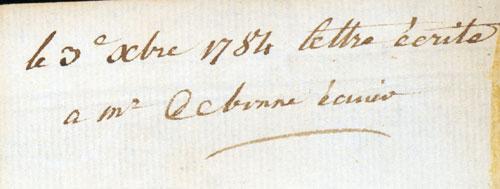 le 3e xbre 1784 lettre écrite
a mr Debonne écuier